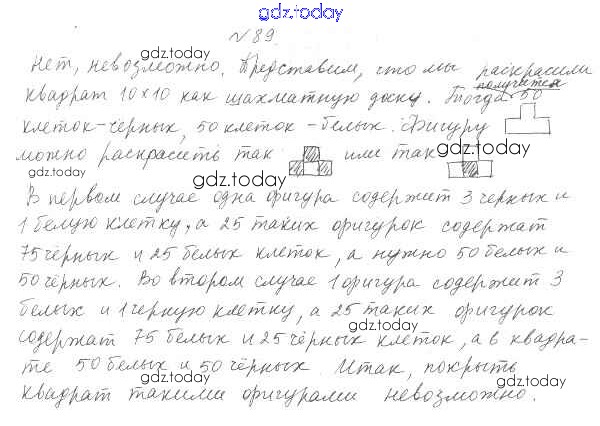 gdz.today
№89.
gdz.today
Нет, невозможно. Представим, что мы раскрасили
получится
квадрат 10×10 как шахматную доску. Тогда 50
gdz.today
клеток-чёрных, 50 клеток - белых. Фигуру
gdz.today
можно раскрасить так или так
gdz.today
gdz.today
В первом случае одна фигура содержит 3 черных и
1 белую клетку, а 25 таких фигурок содержат
gdz.today
75 чёрных и 25 белых клеток, а нужно 50 белых и
50 чёрных. Во втором случае 1 фигура содержит 3
белых и 1 черную клетку, а 25 таких фигурок
gdz.today
содержат 75 белых и 25 чёрных клеток, а в квадра-
те 50 белых и 50 чёрных. Итак, покрыть
gdz.today
gdz.today
квадрат такими фигурами невозможно.